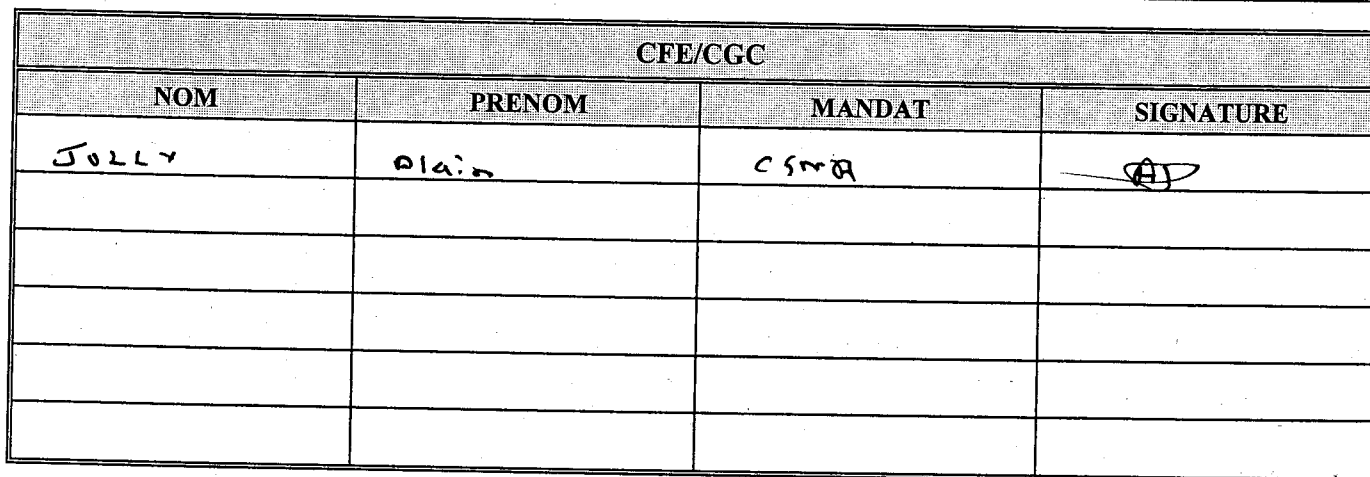 CFE/CGC
NOM PRENOM MANDAT SIGNATURE
JOLLY Alain